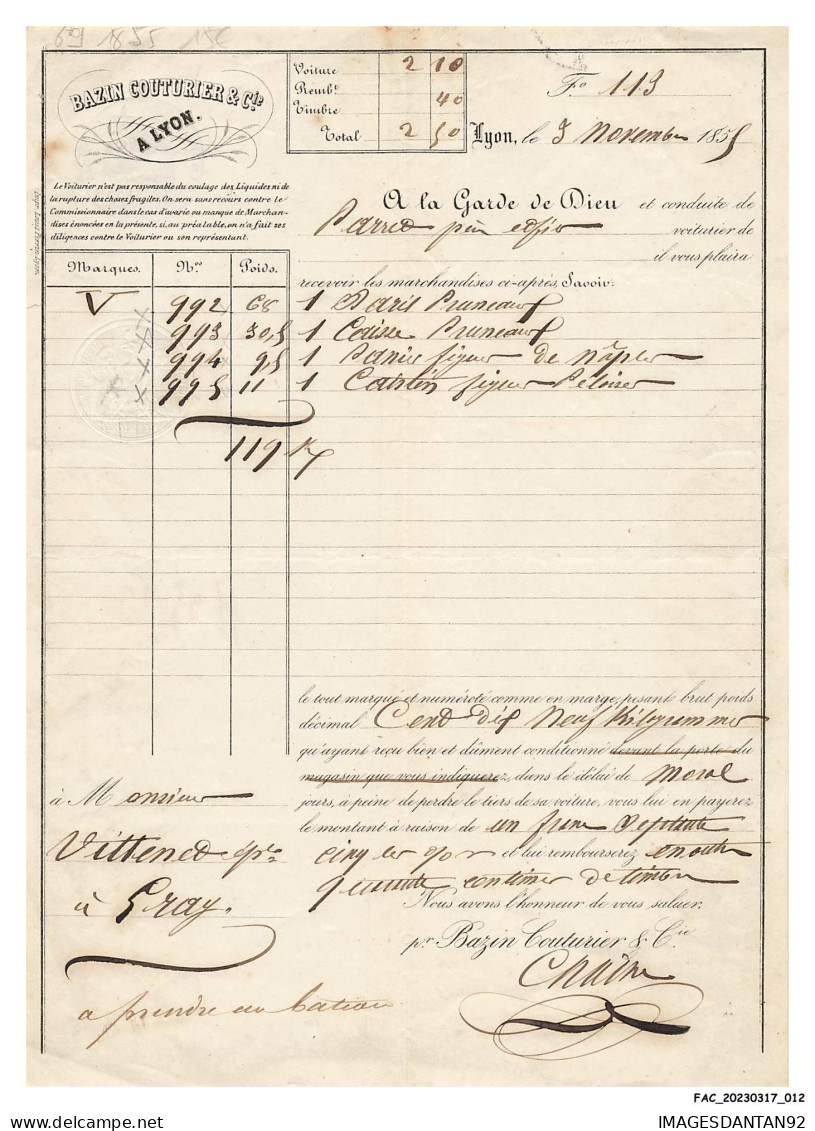 69 1855 15€
BAZIN COUTURIER & Cie
A LYON.
Le Voiturier n'est pas responsable du coulage des Liquides ni de
la rupture des choses fragiles. On sera sans recours contre le
Commissionnaire dans le cas d'avarie ou manque de Marchan-
dises énoncées en la présente, si, au préalable, on n'a fait ses
diligences contre le Voiturier ou son représentant.
Voiture 2 10
Rembt
Timbre 40
Total 2 50
Fo 113
Lyon, le 3 Novembre 1855
A la Garde de Dieu et conduite de
voiturier de
il vous plaira
recevoir les marchandises ci-après, Savoir:
Marques. Nos Poids.
V 992 68 1 Baril Pruneaux
993 30,5 1 Caisse Pruneaux
994 9,5 1 Panier figues de Naples
995 11 1 figues
119 K
le tout marqué et numéroté comme en marge, pesant brut poids
décimal Cent dix Neuf Kilogrammes
qu'ayant reçu bien et dûment conditionné devant la porte du
magasin que vous indiquerez, dans le délai de moral
jours, à peine de perdre le tiers de sa voiture, vous lui en payerez
le montant à raison de un franc Septante
cinq les et lui rembourserez en outre
quarante centimes de timbre
Nous avons l'honneur de vous saluer,
pr Bazin Couturier & Cie
à Monsieur
à Gray.
a prendre au bateau
Impr. Louis Perrin, Lyon.
FAC_20230317_012
IMAGESDANTAN92